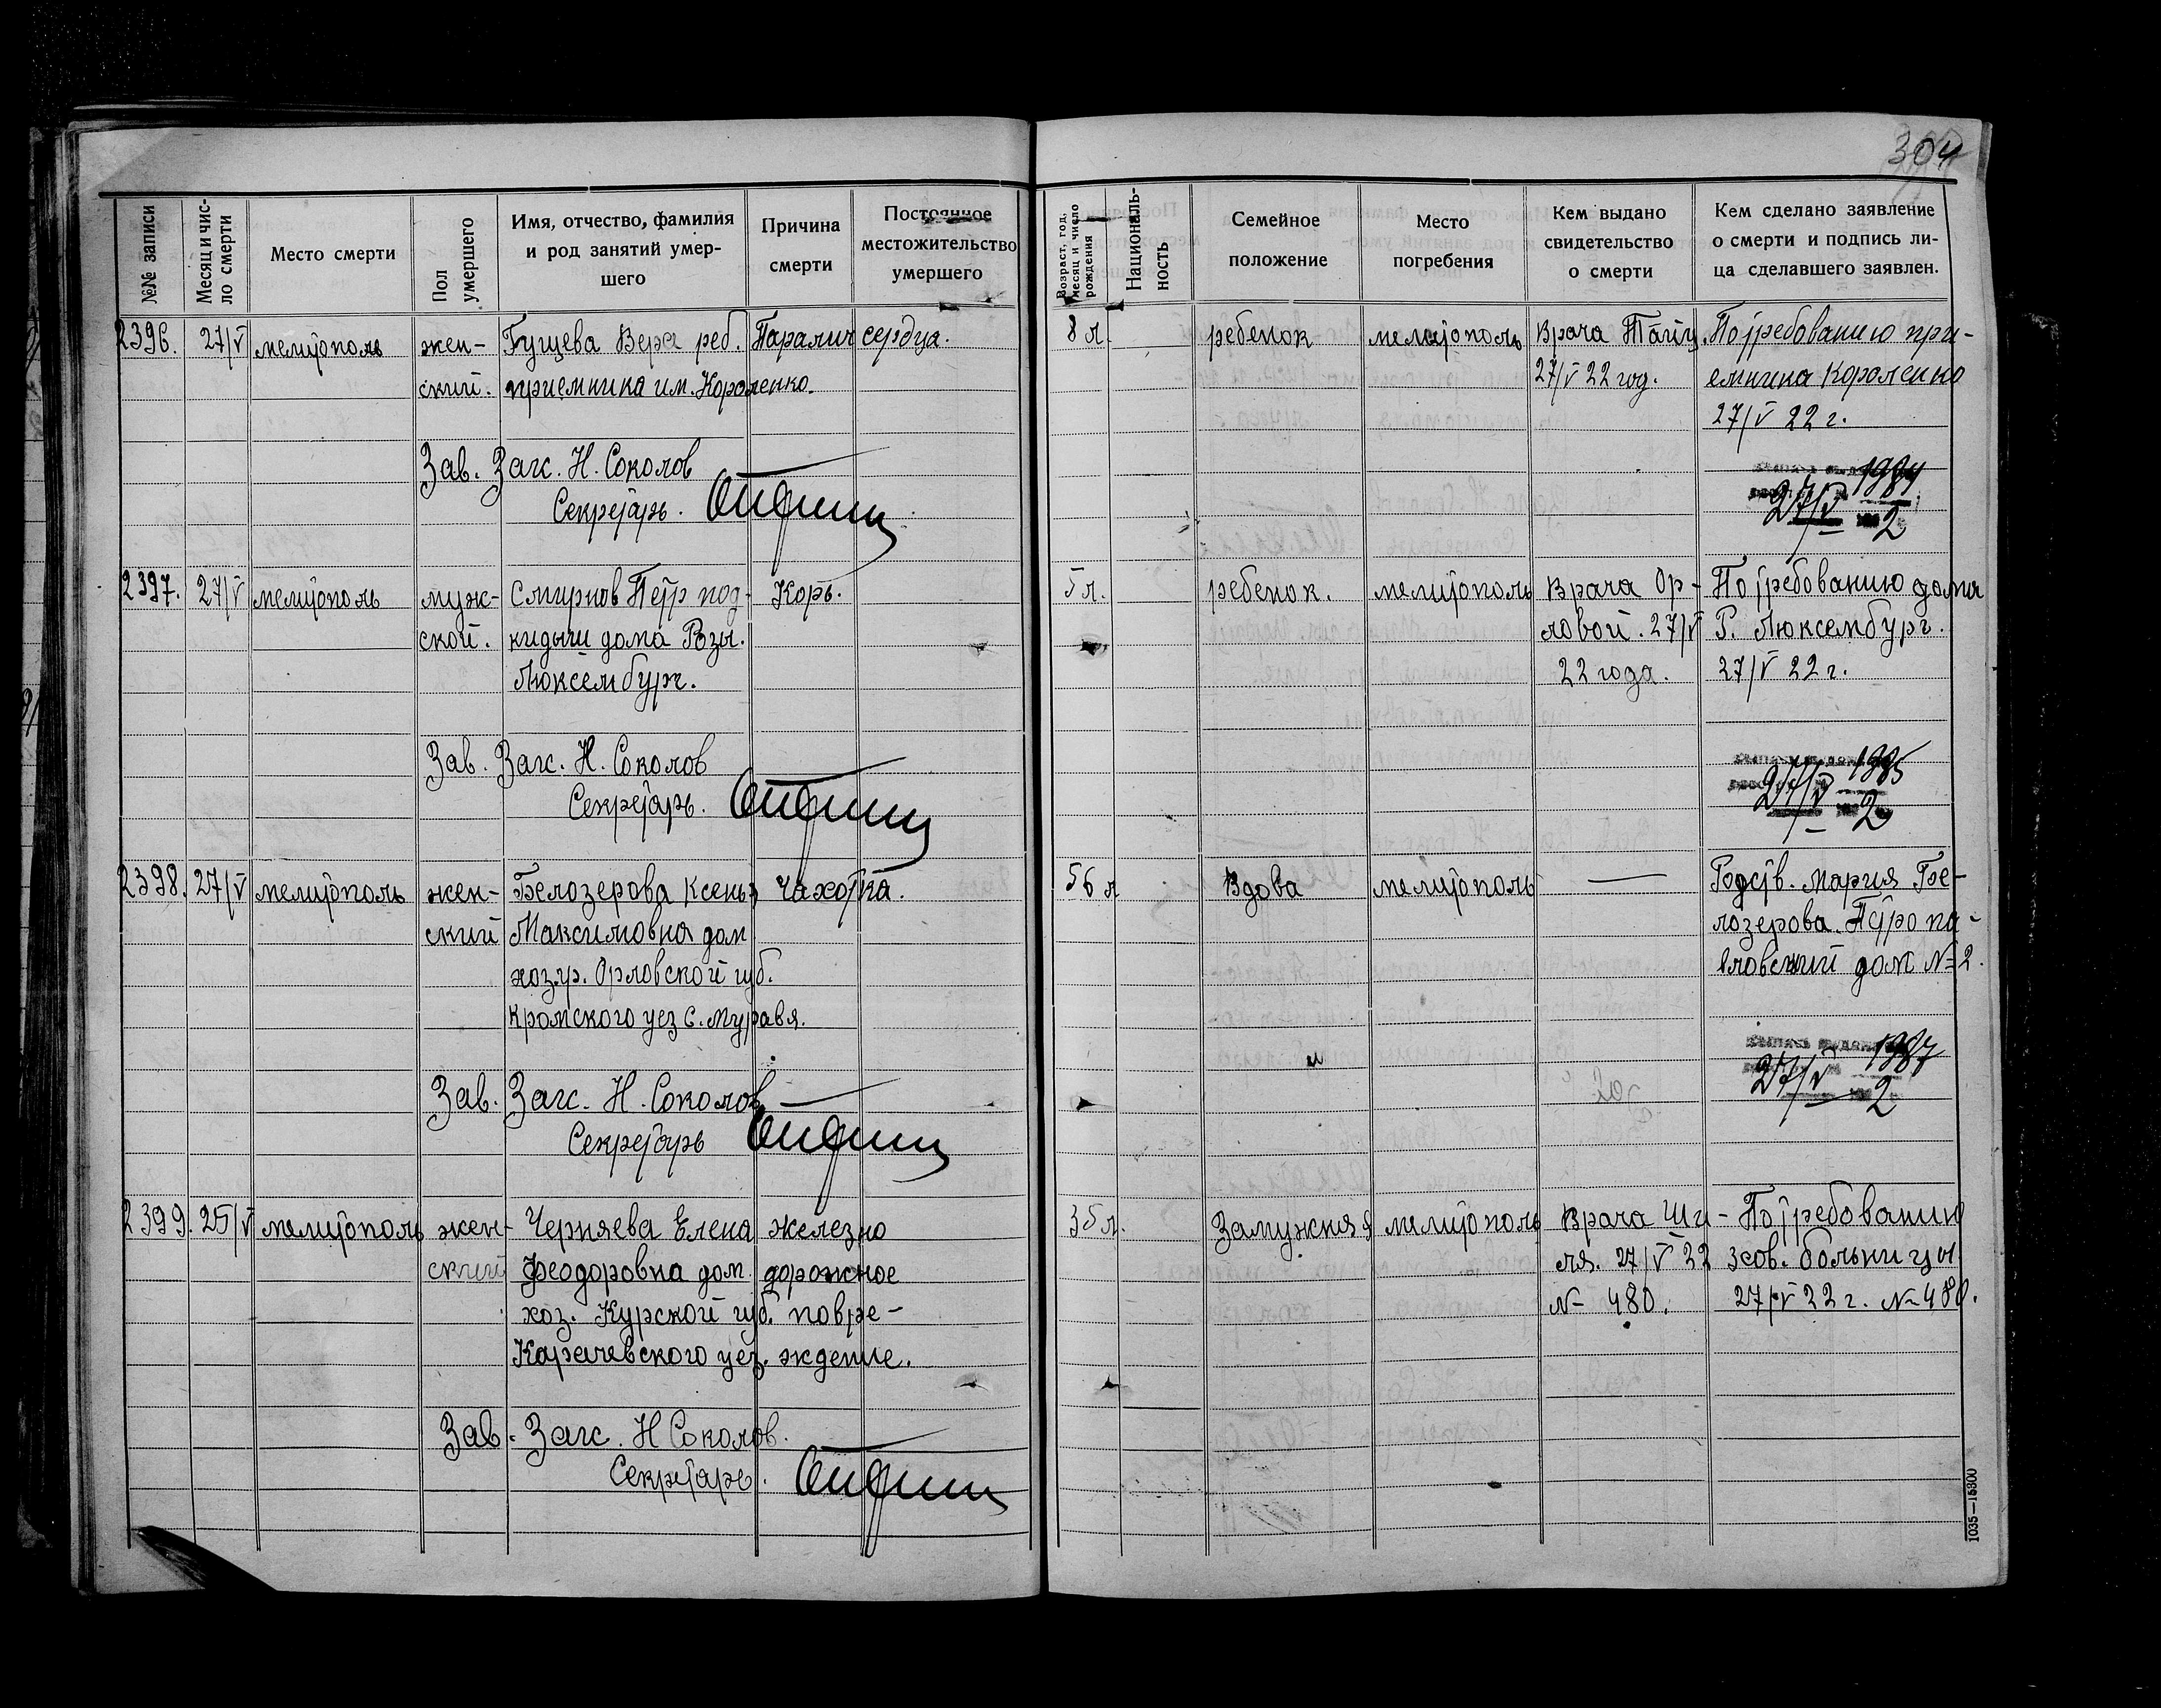 304
№№ записи
Месяц и чис-
ло смерти
Место смерти
Пол
умершего
Имя, отчество, фамилия
и род занятий умер-
шего
Причина
смерти
Постоянное
местожительство
умершего
Возраст, год,
месяц и число
рождения
Националь-
ность
Семейное
положение
Место
погребения
Кем выдано
свидетельство
о смерти
Кем сделано заявление
о смерти и подпись ли-
ца сделавшего заявлен.
2396. 27/V мелитополь жен- Гущева Вера реб. Паралич сердца. 8 л. ребенок мелитополь Врача По требованию при-
ский. приемника им. Короленко. 27/V 22 год. емника Короленко
27/V 22 г.
Зав. Загс. Н. Соколов
Секретарь.
1984
27/V 2
2397. 27/V мелитополь муж- Смирнов Петр под- Корь. 5 л. ребенок. мелитополь Врача Ор- По требованию дома
ской. кидыш дома Розы. ловой. 27/V Р. Люксембург.
Люксембург. 22 года. 27/V 22 г.
Зав. Загс. Н. Соколов
Секретарь.
1985
27/V 2
2398. 27/V мелитополь жен- Белозерова Ксенья Чахотка. 56 л Вдова мелитополь — Родств. Мария Бе-
ский Максимовна дом лозерова. Петропа-
хоз. гр. Орловской губ. вловский дом № 2.
Кромского уез с. Муравя.
Зав. Загс. Н. Соколов
Секретарь
1987
27/V 2
2399. 25/V мелитополь жен- Черняева Елена железно 35 л. Замужняя мелитополь Врача Ши- По требованию
ский Феодоровна дом. дорожное ля. 27/V 22 3 сов. больницы
хоз. Курской губ. повре- № 480. 27/V 22 г. № 480.
Карачевского уез. ждение.
Зав. Загс. Н Соколов.
Секретарь.
1035—15300